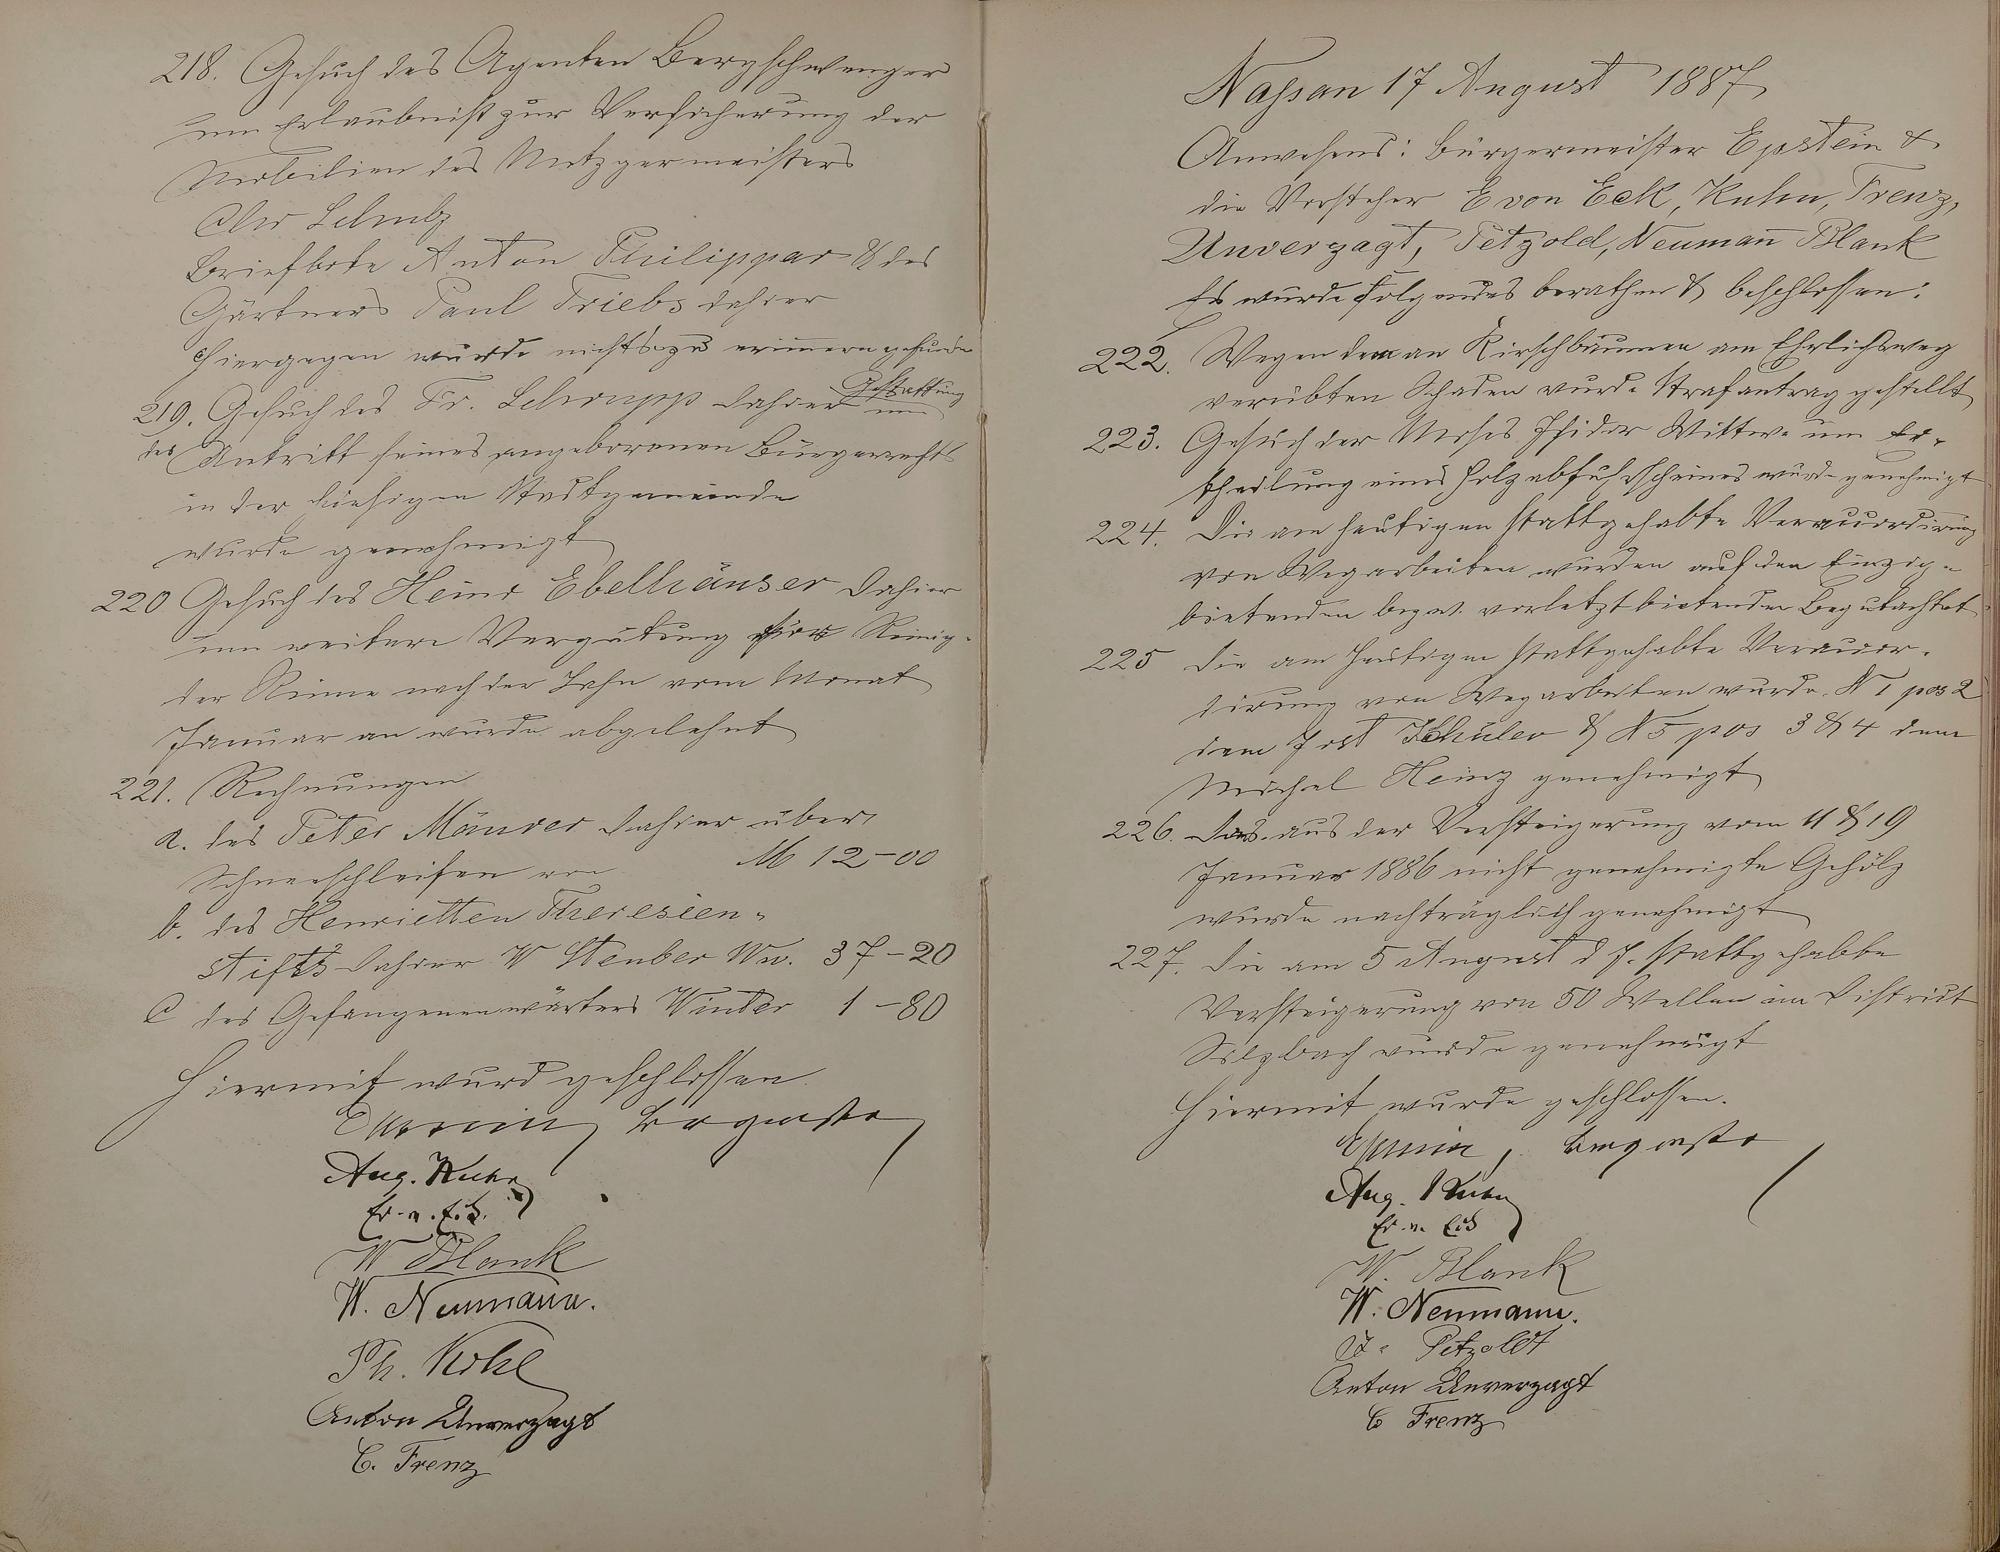 218. Gesuch des Agenten Bergschwenger
um Erlaubniß zur Versicherung der
Mobilien des Metzgermeisters
Chr Schulz
Briefbote Anton Philippar & des
Gärtners Paul Triebs dahier
Hiergegen wurde nichts zu erinnern gefunden
219. Gesuch des Fr. Schrupp dahier um Gestattung
des Antritt seines angeborenen Bürgerrechts
in der hiesigen Stadtgemeinde
wurde genehmigt
220 Gesuch des Heinr Ebelhäuser dahier
um weitere Vergütung für Reinig-
der Rinne nach der Lahn vom Monat
Januar an wurde abgelehnt
221. Rechnungen
a. des Peter Mäurer dahier über
Schneeschleifen von M 12-00
b. des Henrietten Theresien-
stifts dahier W Steuber Ww. 37-20
c des Gefangenenwärters Winter 1-80
Hiermit wurd geschlossen.
Epstein, Brgmstr
Aug. Kuhn
Er. v. Eck.
W Blank
W. Neumann.
Ph. Kohl
Anton Unverzagt
C. Frenz
Nassau 17 August 1887
Anwesend: Bürgermeister Epstein &
die Vorsteher E von Eck, Kuhn, Frenz,
Unverzagt, Petzold, Neumañ Blank
Es wurde Folgendes berathen & beschlossen:
222. Wegen dem an Kirschbäumen am Ehrlichsweg
verübten Schaden wurde Strafantrag gestellt
223. Gesuch der Moses Isidor Wittwe um Er-
theilung eines Holzabfuhrscheines wurde genehmigt
224. Die am heutigen stattgehabte Veraccordirung
von Wegarbeiten wurden auf den Einzig-
bietenden bezw. vorletztbietenden begutachtet
225 Die am heutigen stattgehabte Veraccor-
dirung von Wegarbeiten wurde N 1 pos 2
dem Jost Schüler & N 5 pos 3 & 4 dem
Michel Heinz genehmigt
226. Das aus der Versteigerung vom 11 & 19
Januar 1886 nicht genehmigte Gehölz
wurde nachträglich genehmigt
227. Die am 5 August d J. stattgehabte
Versteigerung von 50 Wellen im District
Sulzbach wurde genehmigt
Hiermit wurde geschlossen.
Epstein, Brgmstr
Aug. Kuhn
Er. v. Eck
W. Blank
W. Neumann.
Petzoldt
Anton Unverzagt
C Frenz